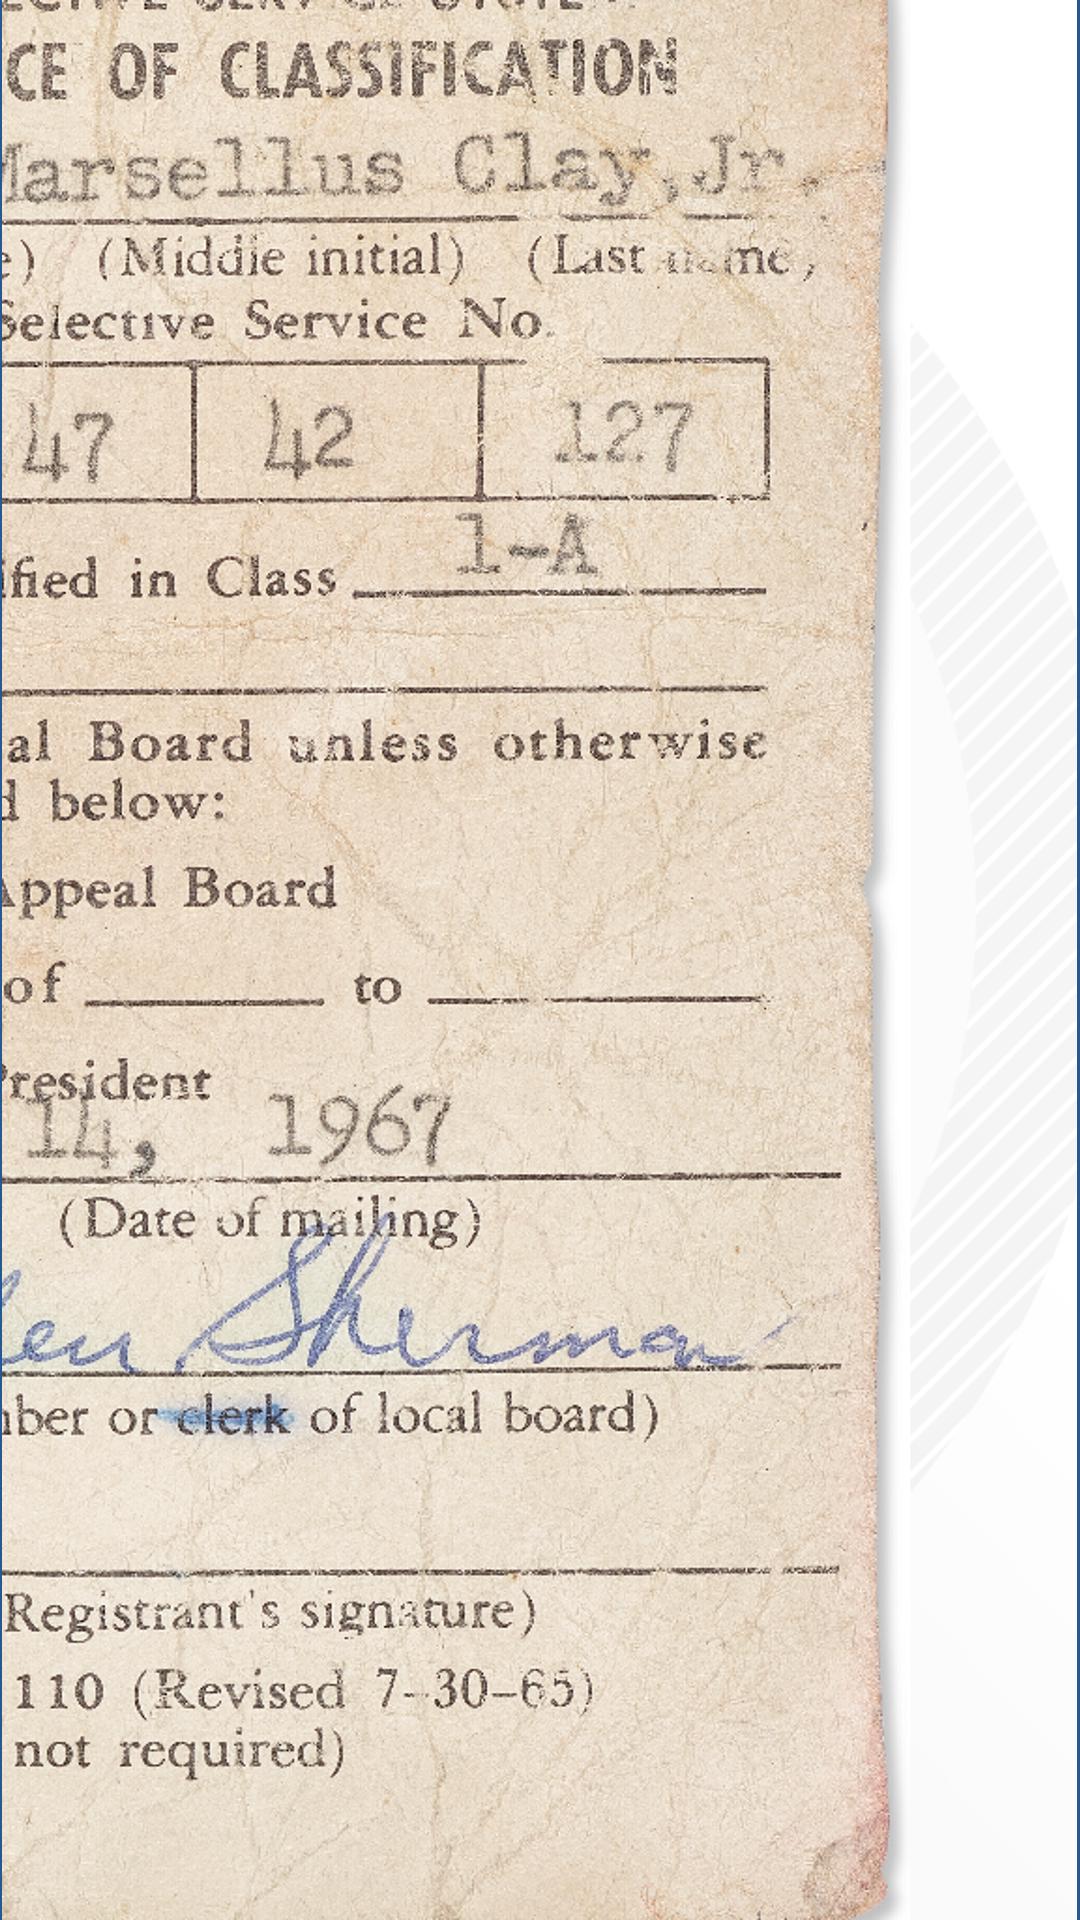 CE OF CLASSIFICATION
Marsellus Clay,Jr.
e) (Middle initial) (Last name)
Selective Service No.
47 42 127
ified in Class 1-A
al Board unless otherwise
d below:
Appeal Board
of to
President
14, 1967
(Date of mailing)
en Sherman
mber or clerk of local board)
Registrant's signature)
110 (Revised 7-30-65)
not required)